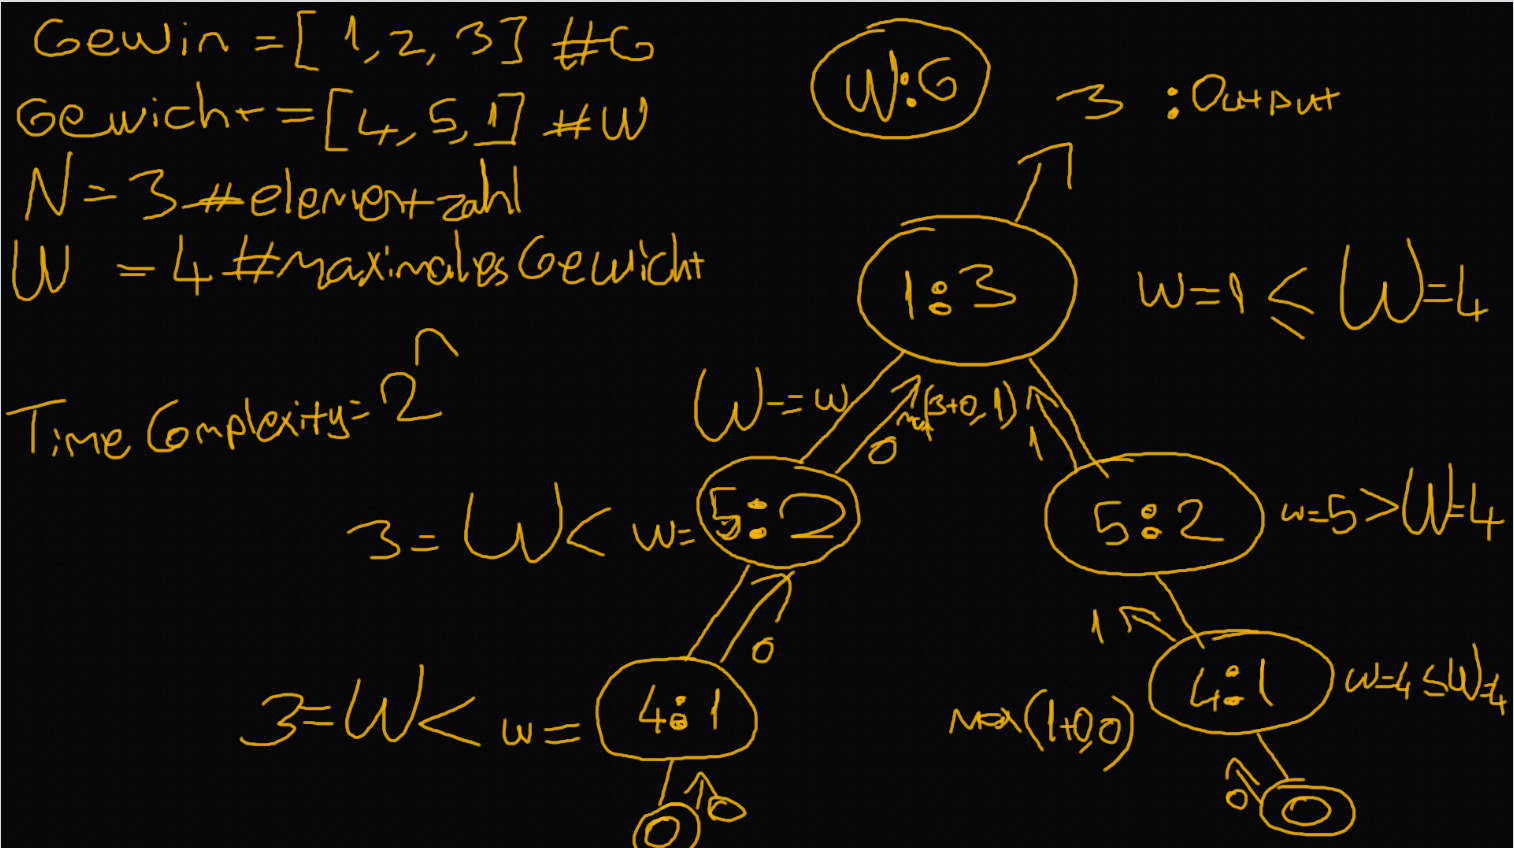 Gewin = [ 1, 2, 3] #G
Gewicht = [4, 5, 1] #W
N = 3 #elementzahl
W = 4 #maximalesGewicht
Time Complexity = 2^n
W:G
3 : Output
1:3
w=1 ≤ W=4
W-=w
0
max(3+0, 1)
1
3 = W < w =
5:2
5:2
w=5 > W=4
0
1
3 = W < w =
4:1
max(1+0,0)
4:1
w=4 ≤ W=4
0
0
0
0